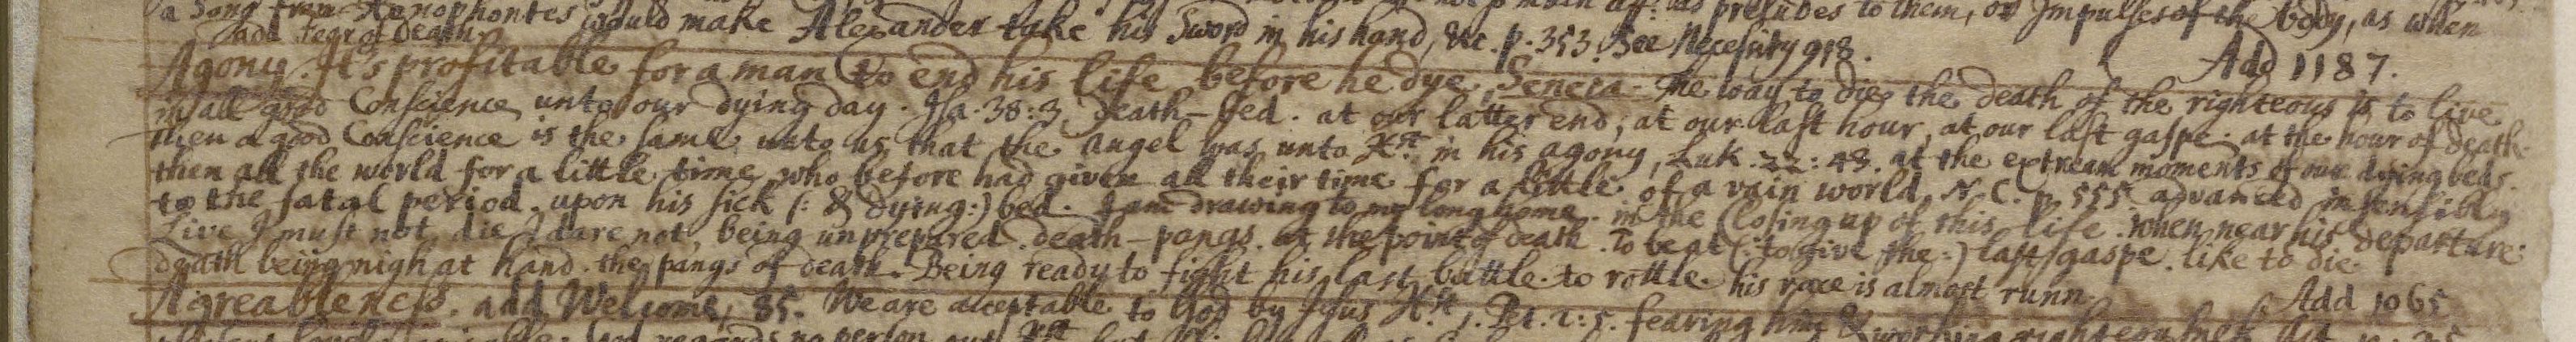 a Song from Xenophontes would make Alexander take his Sword in his hand, &c. p. 353. See Necessity 918. to them, or Impulses of the body, as when
add Fear of Death. Add 1187.
Agony. It's profitable for a man to end his life before he dye, Seneca. The way to die the death of the righteous is to live
in all good Conscience unto our dying day. Isa. 38:3. death-bed. at our latter end; at our last hour, at our last gaspe. at the hour of death.
then a good Conscience is the same unto us that the angel was unto Xst in his agony, Luk. 22:43. at the extream moments of our dying beds.
then all the world for a little time, who before had given all their time for a little of a vain world. N. C. p. 555. advanced insensibly
to the fatal period. upon his sick (: & dying:) bed. I am drawing to my long home. in the closing up of this life. When near his departure:
Live I must not, die I dare not, being unprepared. death-pangs. at the point of death. To be at (: to give the:) last gaspe. like to die.
death being nigh at hand. the pangs of death. Being ready to fight his last battle. to rottle. his race is almost runn.
Agreableness. add Welcome, 85. We are acceptable to God by Jesus Xst, 1. Pet. 2:5. fearing him & working righteousness Add 1065
God regards no person